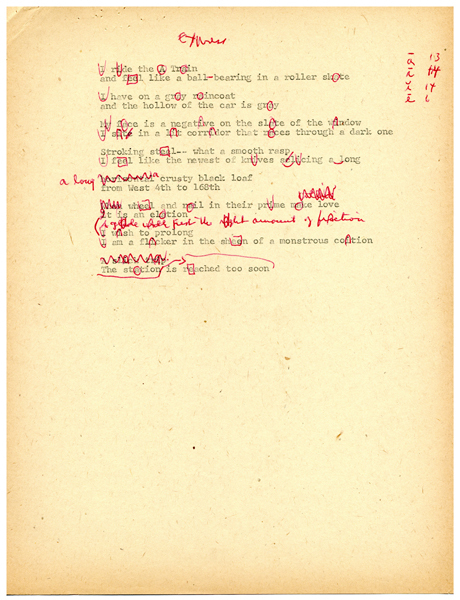 Express
ā 13
I ride the A Train
and feel like a ball-bearing in a roller skate
I have on a gray raincoat
and the hollow of the car is gray
My face is a negative on the slate of the window
I sit in a lit corridor that races through a dark one
Stroking steel-- what a smooth rasp
I feel like the newest of knives slicing along
a long crusty black loaf
from West 4th to 168th
wheel and rail in their prime make love
it is an elation
together with just the right amount of friction
I wish to prolong
I am a flicker in the sheen of a monstrous
The station is reached too soon